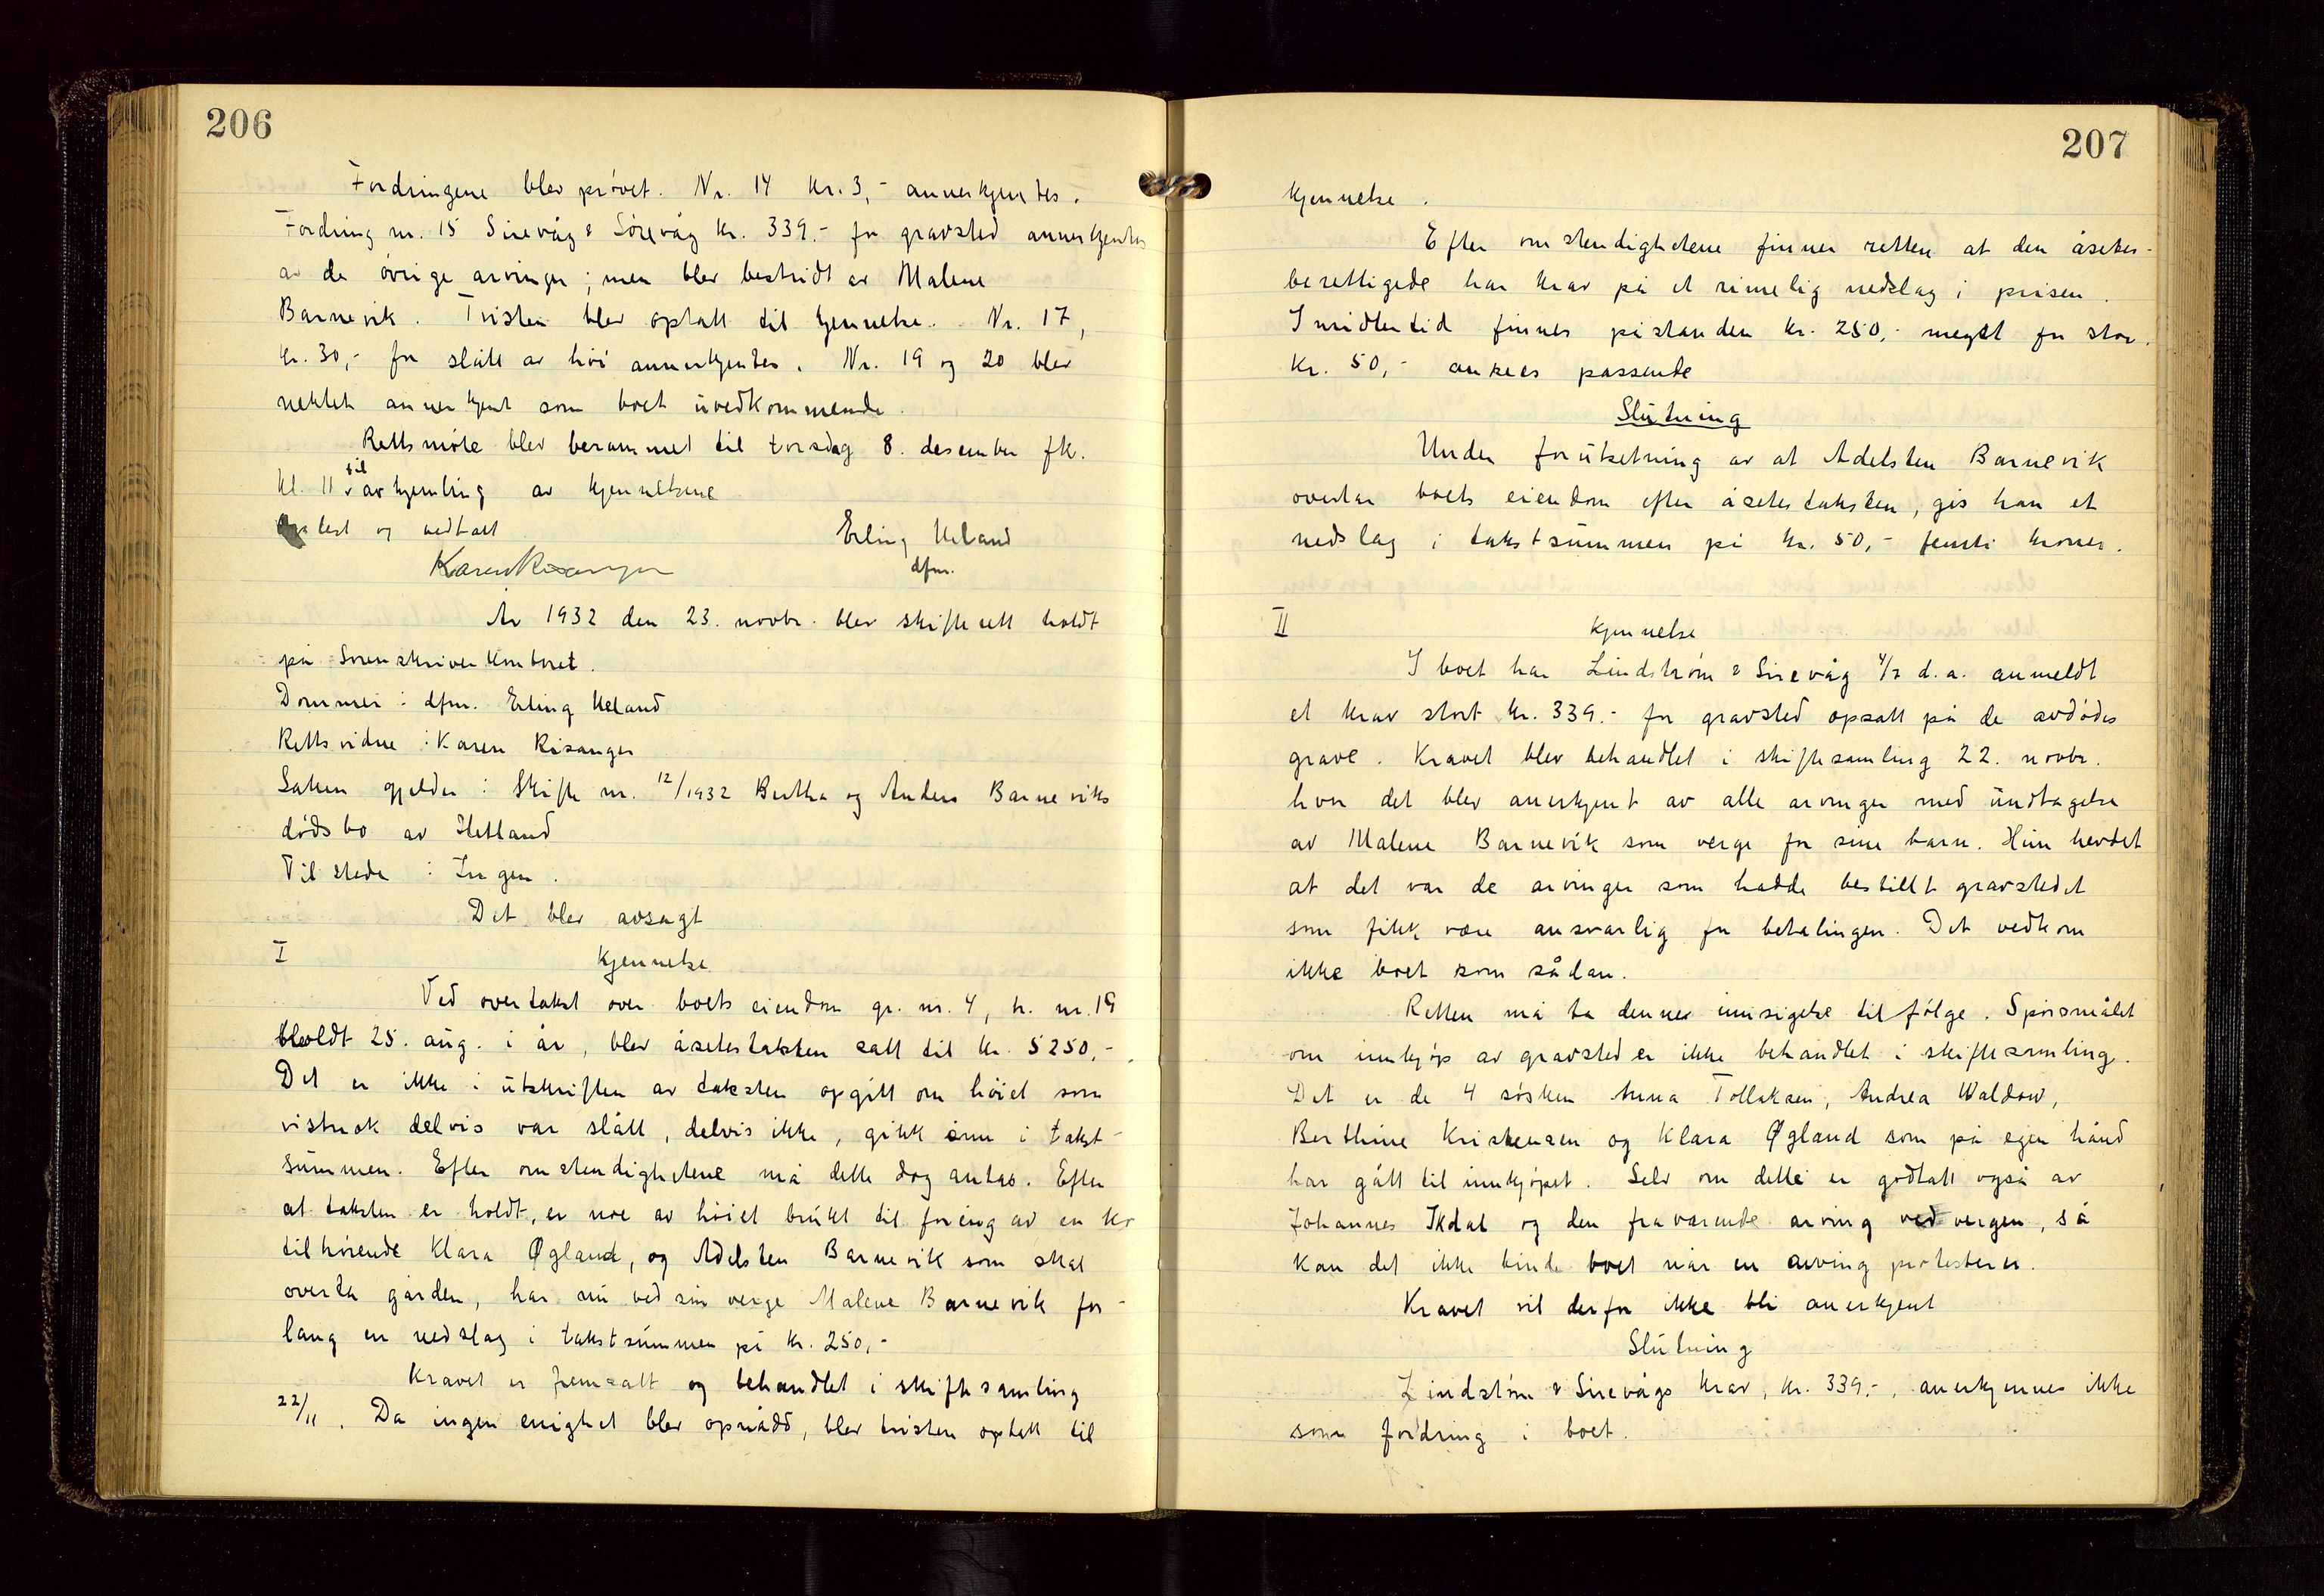 206
Fordringene blev prøvet. Nr. 14 kr. 3,- annerkjentes.
Fordring nr. 15 Sirevåg & Sirevåg kr. 339.- for gravsted annerkjentes
av de øvrige arvinger; men blev bestridt av Malene
Barnevik. Tvisten blev optatt til kjennelse. Nr. 17,
kr. 30,- for slått av høi annerkjentes. Nr. 19 og 20 blev
nektet annerkjent som boet uvedkommende.
Rettsmøte blev berammet til torsdag 8. desember fk.
kl. 11 til avkjenling av kjennelsene
Oplest og vedtatt
Erling Ueland
dfm.
Karen Risanger
År 1932 den 23. novbr. blev skifterett holdt
på Sorenskriverkontoret.
Dommer: dfm. Erling Ueland
Rettsvidne: Karen Risanger
Saken gjelder: Skifte nr. 12/1932 Bertha og Anders Barneviks
dødsbo av Hetland
Tilstede: Ingen.
Det blev avsagt
I
Kjennelse
Ved overtakst over boets eiendom gr. nr. 4, br. nr. 19
holdt 25. aug. i år, blev åsetestaksten satt til kr. 5250,-.
Det er ikke i utskriften av taksten opgitt om høiet som
vistnok delvis var slått, delvis ikke, gikk inn i takst-
summen. Efter omstendighetene må dette dog antas. Efter
at taksten er holdt, er noe av høiet brukt til foring av en ku
tilhørende Klara Øgland, og Adelsten Barnevik som skal
overta gården, har nu ved sin verge Malene Barnevik for-
langt en nedslag i takstsummen på kr. 250,-
Kravet er fremsatt og behandlet i skiftesamling
22/11. Da ingen enighet blev opnådd, blev tvisten optatt til
207
kjennelse.
Efter omstendighetene finner retten at den åsetes-
berettigede har krav på et rimelig nedslag i prisen.
Imidlertid finnes påstanden kr. 250,- meget for stor.
Kr. 50,- ansees passende
Slutning
Under forutsetning av at Adelsten Barnevik
overtar boets eiendom efter åsetestaksten, gis han et
nedslag i takstsummen på kr. 50,- femti kroner.
II
Kjennelse
I boet har Lindstrøm & Sirevåg 4/7 d.a. anmeldt
et krav stort kr. 339.- for gravsted opsatt på de avdødes
grave. Kravet blev behandlet i skiftesamling 22. novbr.
hvor det blev anerkjent av alle arvinger med undtagelse
av Malene Barnevik som verge for sine barn. Hun hevdet
at det var de arvinger som hadde bestillt gravstedet
som fikk være ansvarlig for betalingen. Det vedkom
ikke boet som sådan.
Retten må ta dennes innsigelse tilfølge. Spørsmålet
om innkjøp av gravsted er ikke behandlet i skiftesamling.
Det er de 4 søsken Anna Tollaksen, Andrea Waldow,
Berthine Kristensen og Klara Øgland som på egen hånd
har gått til innkjøpet. Selv om dette er godtatt også av
Johannes Ikdal og den fraværende arving ved vergen, så
kan det ikke binde boet når en arving protesterer.
Kravet vil derfor ikke bli anerkjent
Slutning
Lindstrøm & Sirevågs krav, kr. 339,-, anerkjennes ikke
som fordring i boet.